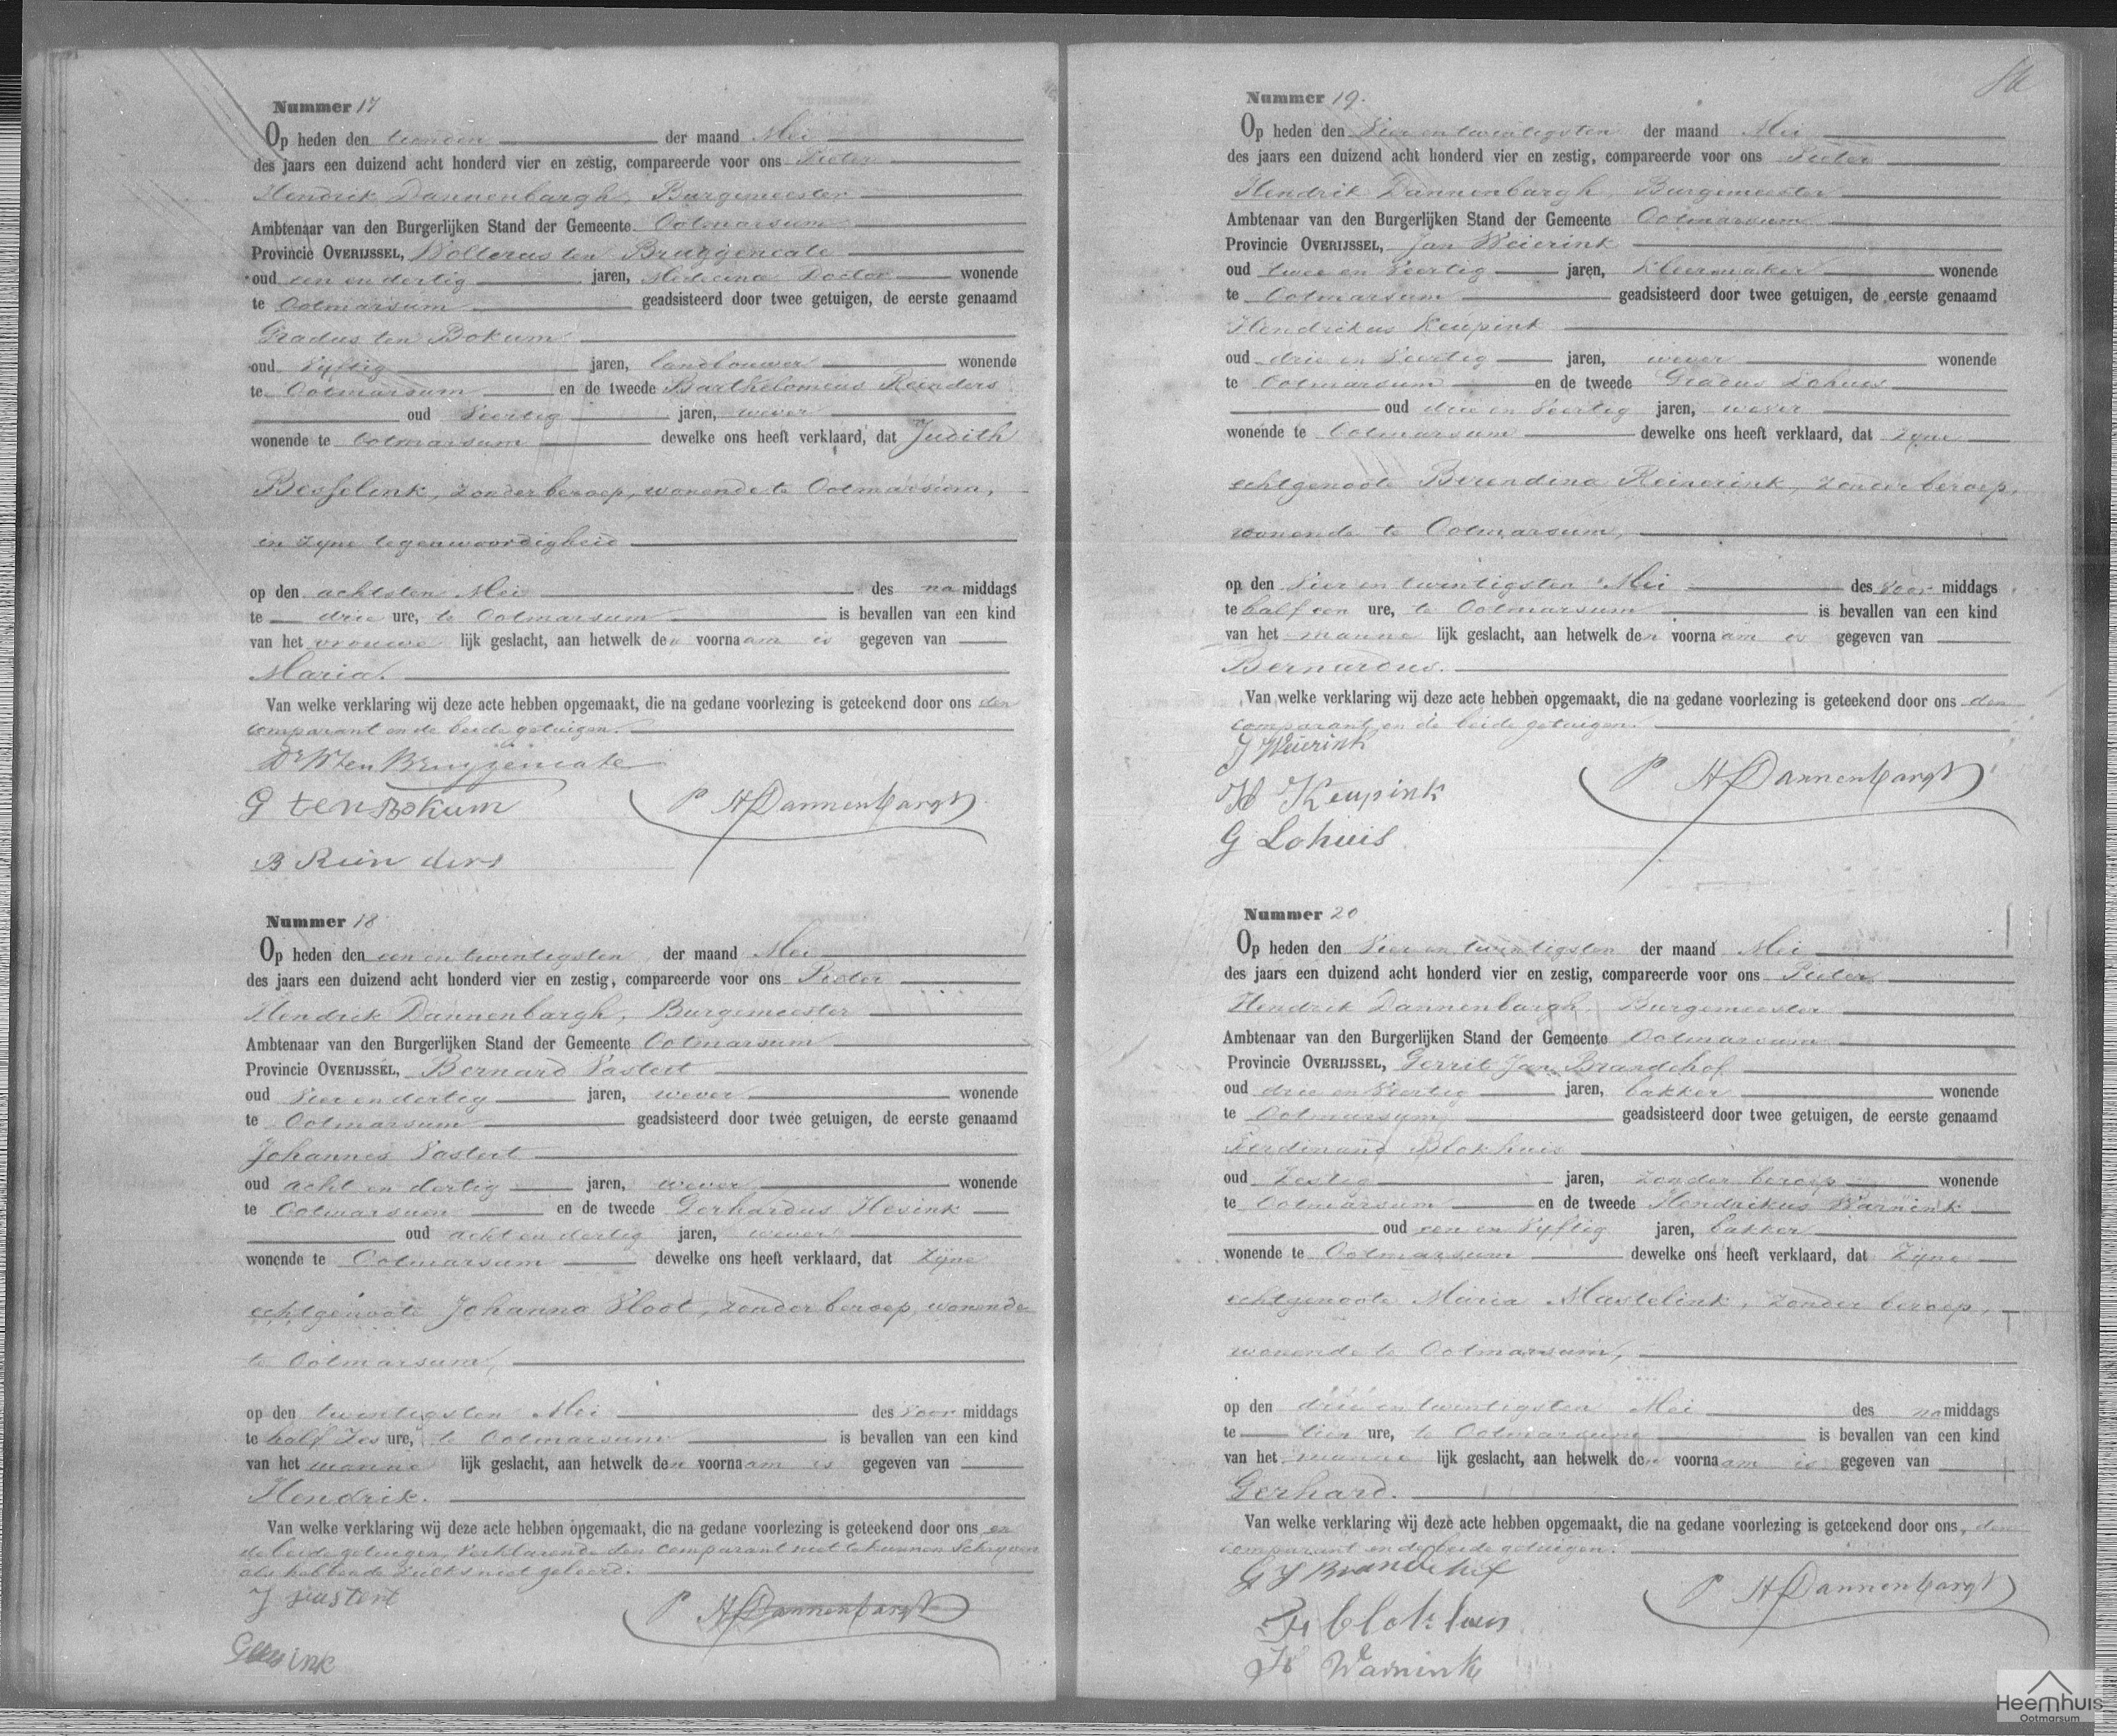 Nummer 17
Op heden den tienden der maand Mei
des jaars een duizend acht honderd vier en zestig, compareerde voor ons Pieter
Hendrik Dannenbargh, Burgemeester
Ambtenaar van den Burgerlijken Stand der Gemeente Ootmarsum
Provincie OVERIJSSEL, Wolterus ten Bruggencate
oud een en dertig jaren, Medicina Doctor wonende
te Ootmarsum geadsisteerd door twee getuigen, de eerste genaamd
Gradus ten Bokum
oud Vyftig jaren, landbouwer wonende
te Ootmarsum en de tweede Bartholomeus Reinders
oud Veertig jaren, wever
wonende te Ootmarsum dewelke ons heeft verklaard, dat Judith
Besselink, zonder beroep, wonende te Ootmarsum,
in zyne tegenwoordigheid
op den achtsten Mei des na middags
te drie ure, te Ootmarsum is bevallen van een kind
van het vrouwe lijk geslacht, aan hetwelk den voornaam is gegeven van
Maria.
Van welke verklaring wij deze acte hebben opgemaakt, die na gedane voorlezing is geteekend door ons den
comparant en de beide getuigen.
Dr W ten Bruggencate
G ten Bokum
P H Dannenbargh
B Rein ders
Nummer 18
Op heden den een en twintigsten der maand Mei
des jaars een duizend acht honderd vier en zestig, compareerde voor ons Pieter
Hendrik Dannenbargh, Burgemeester
Ambtenaar van den Burgerlijken Stand der Gemeente Ootmarsum
Provincie OVERIJSSEL, Bernard Vastert
oud Vier en dertig jaren, wever wonende
te Ootmarsum geadsisteerd door twee getuigen, de eerste genaamd
Johannes Vastert
oud acht en dertig jaren, wever wonende
te Ootmarsum en de tweede Gerhardus Hesink
oud acht en dertig jaren, wever
wonende te Ootmarsum dewelke ons heeft verklaard, dat Zyne
echtgenoote Johanna Vloot, zonder beroep, wonende
te Ootmarsum,
op den twintigsten Mei des voor middags
te half Zes ure, te Ootmarsum is bevallen van een kind
van het manne lijk geslacht, aan hetwelk den voornaam is gegeven van
Hendrik.
Van welke verklaring wij deze acte hebben opgemaakt, die na gedane voorlezing is geteekend door ons en
de beide getuigen, verklarende den comparant niet te kunnen Schryven
als hebbende zulks niet geleerd.
J Vastert
P H Dannenbargh
Nummer 19.
Op heden den Vier en twintigsten der maand Mei
des jaars een duizend acht honderd vier en zestig, compareerde voor ons Pieter
Hendrik Dannenbargh, Burgemeester
Ambtenaar van den Burgerlijken Stand der Gemeente Ootmarsum
Provincie OVERIJSSEL, Jan Weierink
oud twee en Veertig jaren, Kleermaker wonende
te Ootmarsum geadsisteerd door twee getuigen, de eerste genaamd
Hendrikus Keupink
oud drie en Veertig jaren, wever wonende
te Ootmarsum en de tweede Gradus Lohuis
oud drie en Veertig jaren, wever
wonende te Ootmarsum dewelke ons heeft verklaard, dat Zyne
echtgenoote Berendina Reinerink, zonder beroep,
wonende te Ootmarsum,
op den Vier en twintigsten Mei des voor middags
te half een ure, te Ootmarsum is bevallen van een kind
van het manne lijk geslacht, aan hetwelk den voornaam is gegeven van
Bernardus.
Van welke verklaring wij deze acte hebben opgemaakt, die na gedane voorlezing is geteekend door ons den
comparant en de beide getuigen.
J Weierink
P H Dannenbargh
H Keupink
G Lohuis
Nummer 20
Op heden den Vier en twintigsten der maand Mei
des jaars een duizend acht honderd vier en zestig, compareerde voor ons Pieter
Hendrik Dannenbargh, Burgemeester
Ambtenaar van den Burgerlijken Stand der Gemeente Ootmarsum
Provincie OVERIJSSEL, Gerrit Jan Brandehof
oud drie en Veertig jaren, bakker wonende
te Ootmarsum geadsisteerd door twee getuigen, de eerste genaamd
Ferdinand Blokhuis
oud Zestig jaren, zonder beroep wonende
te Ootmarsum en de tweede Hendrikus Warnink
oud een en Vyftig jaren, bakker
wonende te Ootmarsum dewelke ons heeft verklaard, dat Zyne
echtgenoote Maria Mastelink, zonder beroep,
wonende te Ootmarsum,
op den drie en twintigsten Mei des na middags
te tien ure, te Ootmarsum is bevallen van een kind
van het manne lijk geslacht, aan hetwelk den voornaam is gegeven van
Gerhard.
Van welke verklaring wij deze acte hebben opgemaakt, die na gedane voorlezing is geteekend door ons, den
comparant en de beide getuigen.
G J Brandehof
P H Dannenbargh
H Warnink
Heemhuis
Ootmarsum